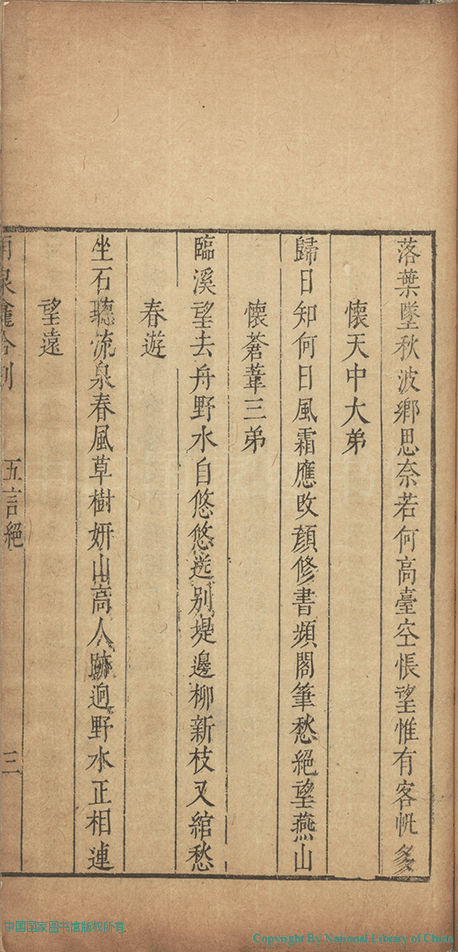 落葉墜秋波鄉思奈若何高臺空悵望惟有客帆多
懷天中大弟
歸日知何日風霜應改顔修書頻閣筆愁絕望燕山
懷蒼葦三弟
臨溪望去舟野水自悠悠送别堤邊柳新枝又綰愁
春遊
坐石聽流泉春風草樹妍山高人跡迥野水正相連
望遠
泉龕合刻 五言絕 三
中国国家图书馆版权所有
Copyright By National Library of China